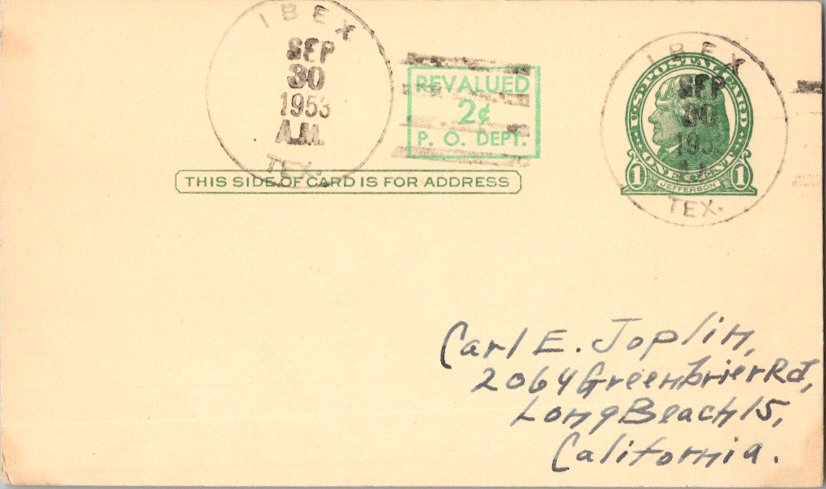 IBEX
SEP
30
1953
A.M.
TEX.
REVALUED
2¢
P. O. DEPT.
IBEX
SEP
30
195
TEX.
U·S·POSTAL CARD
ONE CENT
1 JEFFERSON 1
THIS SIDE OF CARD IS FOR ADDRESS
Carl E. Joplin,
2064 Greenbrier Rd,
Long Beach 15,
California.